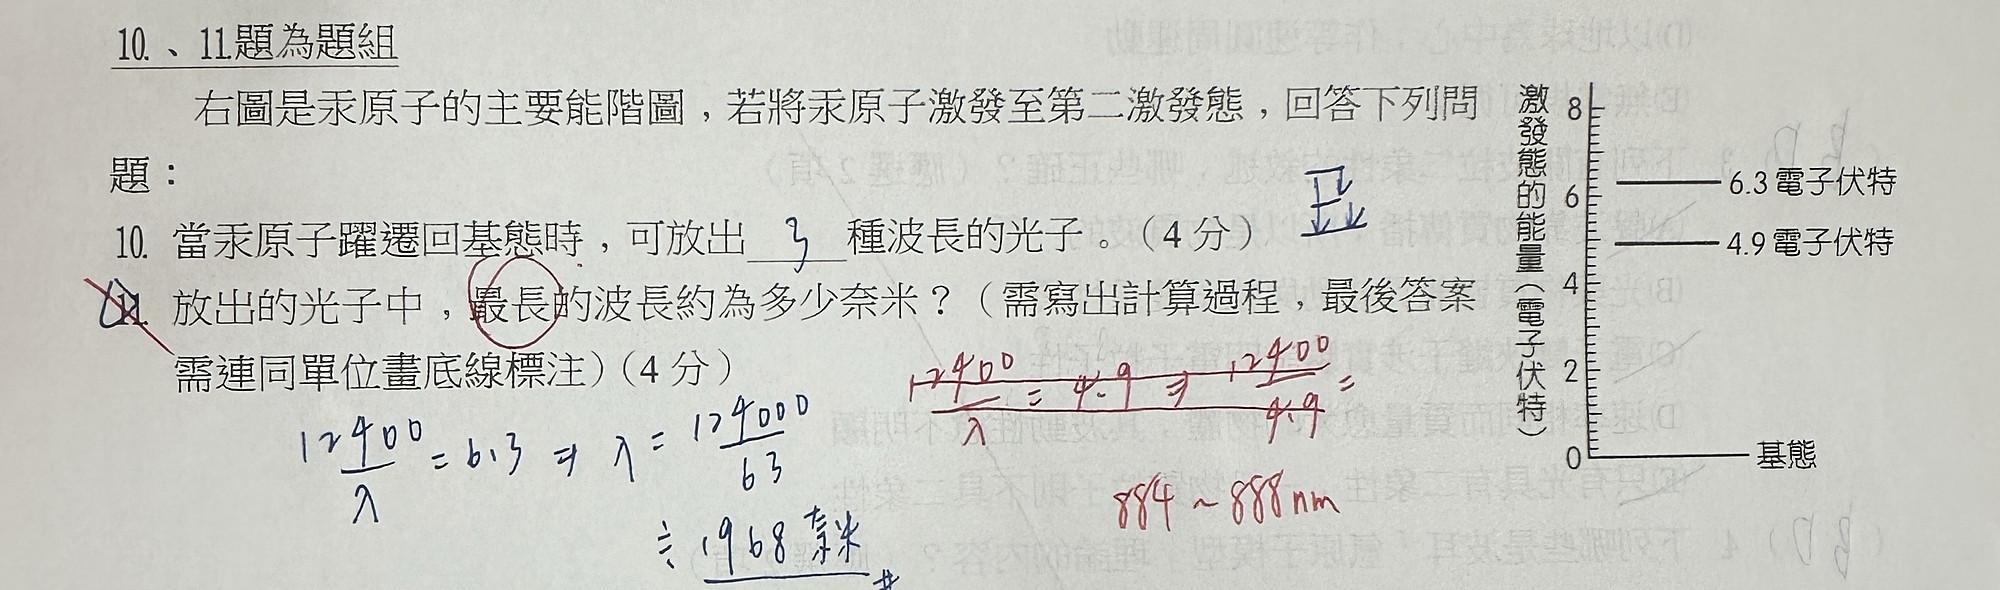 10.、11.題為題組
右圖是汞原子的主要能階圖，若將汞原子激發至第二激發態，回答下列問
題：
10. 當汞原子躍遷回基態時，可放出 3 種波長的光子。（4 分）
11. 放出的光子中，最長的波長約為多少奈米？（需寫出計算過程，最後答案
需連同單位畫底線標注）（4 分）
12400/λ = 6.3 ⇒ λ = 124000/63
≒ 1968 奈米 #
12400/λ = 4.9 ⇒ 12400/4.9 =
884 ~ 888 nm
激發態的能量（電子伏特）
8
6
4
2
0
6.3 電子伏特
4.9 電子伏特
基態